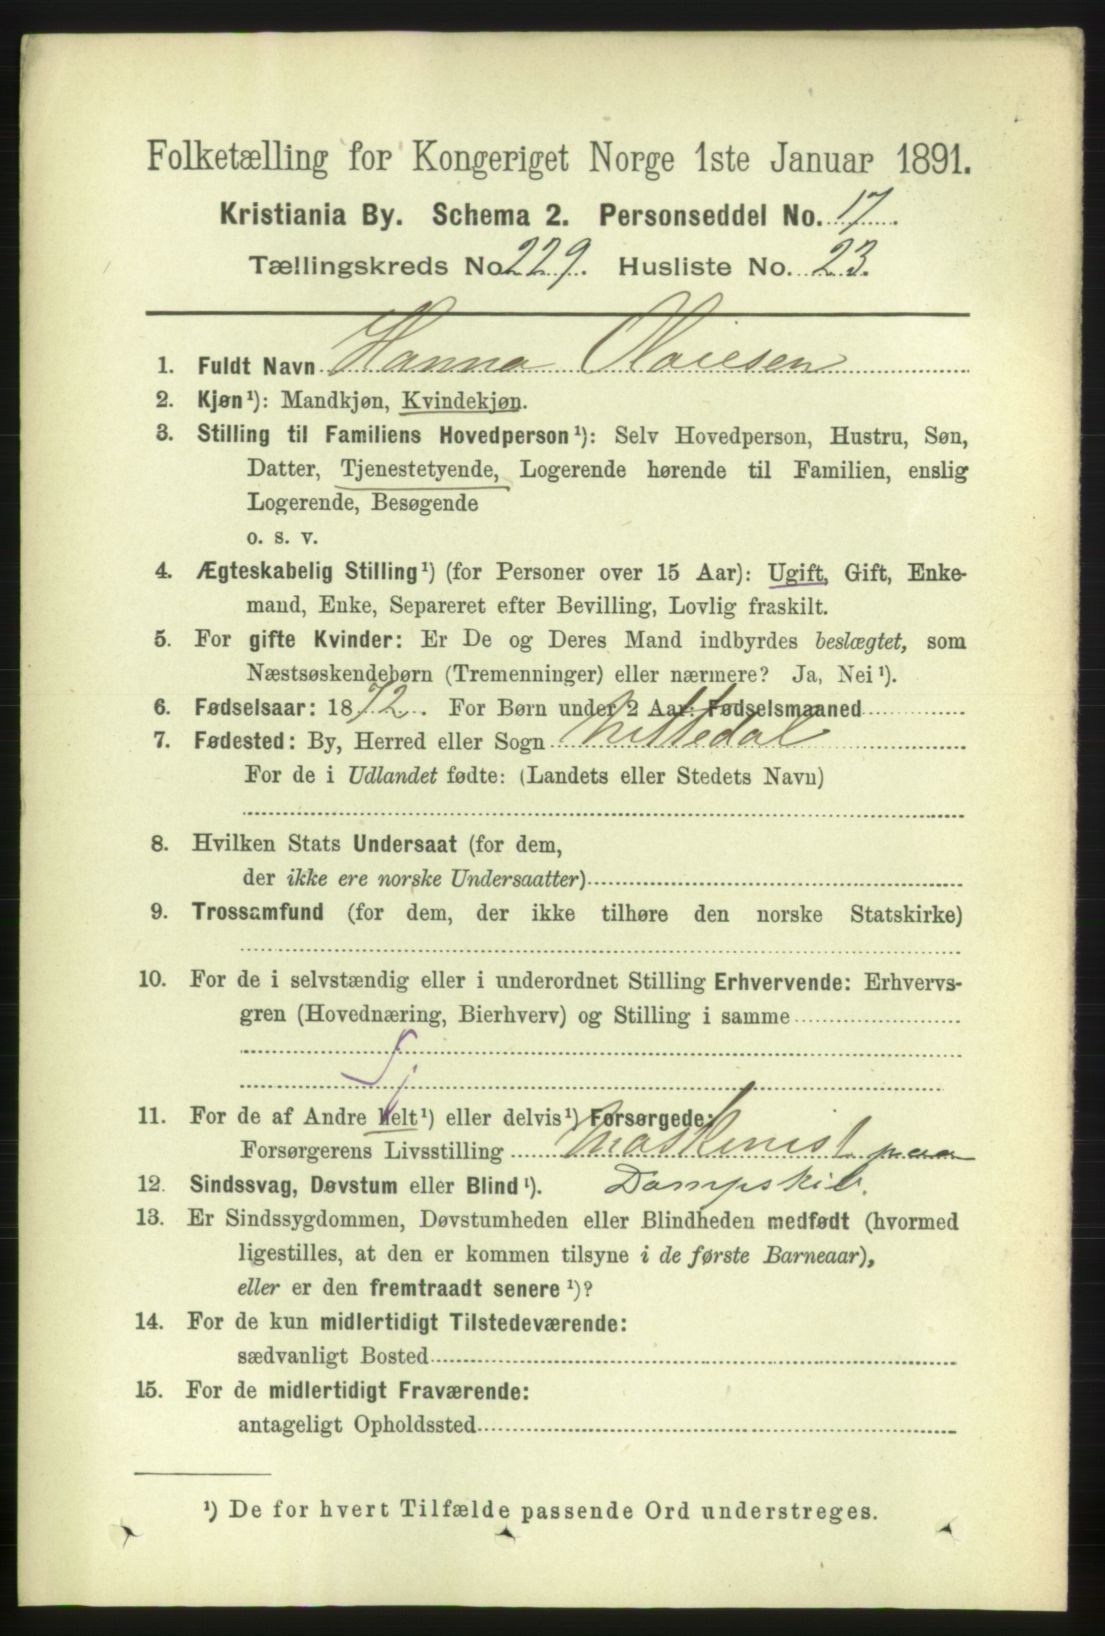 Folketælling for Kongeriget Norge 1ste Januar 1891.
Kristiania By. Schema 2. Personseddel No. 17.
Tællingskreds No. 229. Husliste No. 23.
1. Fuldt Navn Hanna Olaiesen
2. Kjøn¹): Mandkjøn, Kvindekjøn.
3. Stilling til Familiens Hovedperson¹): Selv Hovedperson, Hustru, Søn,
Datter, Tjenestetyende, Logerende hørende til Familien, enslig
Logerende, Besøgende
o. s. v.
4. Ægteskabelig Stilling¹) (for Personer over 15 Aar): Ugift, Gift, Enke-
mand, Enke, Separeret efter Bevilling, Lovlig fraskilt.
5. For gifte Kvinder: Er De og Deres Mand indbyrdes beslægtet, som
Næstsøskendebørn (Tremenninger) eller nærmere? Ja, Nei¹).
6. Fødselsaar: 1872. For Børn under 2 Aar: Fødselsmaaned
7. Fødested: By, Herred eller Sogn Nittedal
For de i Udlandet fødte: (Landets eller Stedets Navn)
8. Hvilken Stats Undersaat (for dem,
der ikke ere norske Undersaatter)
9. Trossamfund (for dem, der ikke tilhøre den norske Statskirke)
10. For de i selvstændig eller i underordnet Stilling Erhvervende: Erhvervs-
gren (Hovednæring, Bierhverv) og Stilling i samme
Sj
11. For de af Andre helt¹) eller delvis¹) Forsørgede:
Forsørgerens Livsstilling Maskinist paa
12. Sindssvag, Døvstum eller Blind¹). Dampskib.
13. Er Sindssygdommen, Døvstumheden eller Blindheden medfødt (hvormed
ligestilles, at den er kommen tilsyne i de første Barneaar),
eller er den fremtraadt senere¹)?
14. For de kun midlertidigt Tilstedeværende:
sædvanligt Bosted
15. For de midlertidigt Fraværende:
antageligt Opholdssted
¹) De for hvert Tilfælde passende Ord understreges.